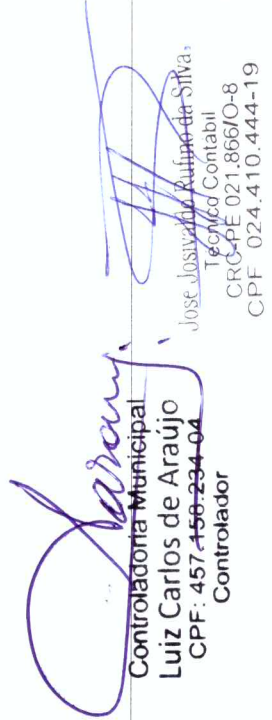 Controladoria Municipal
Luiz Carlos de Araújo
CPF: 457.158.234-04
Controlador
José Josivaldo Rufino da Silva,
Técnico Contabil
CRC-PE 021.866/O-8
CPF 024.410.444-19